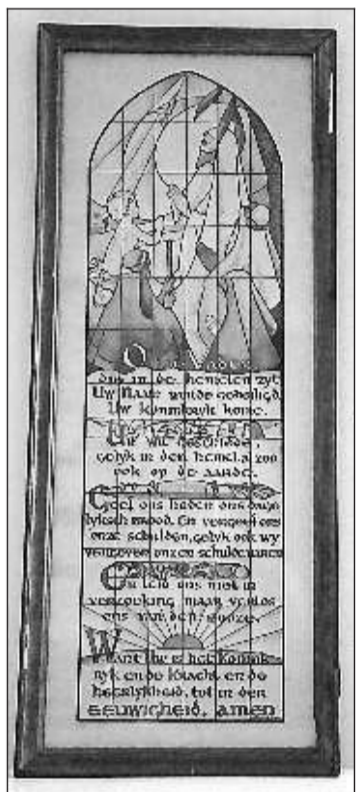 O
die in de hemelen zyt
Uw Naam worde geheiligd
Uw koninkryk kome.
Uw wil geschiede,
gelyk in den hemel, zoo
ook op de aarde.
Geef ons heden ons dage
lyksch brood. En vergeef ons
onze schulden, gelyk ook wy
vergeven onzen schuldenaren
En leid ons niet in
verzoeking, maar verlos
ons van den booze.
Want Uw is het konink
ryk en de kracht en de
heerlykheid, tot in den
eeuwigheid. amen